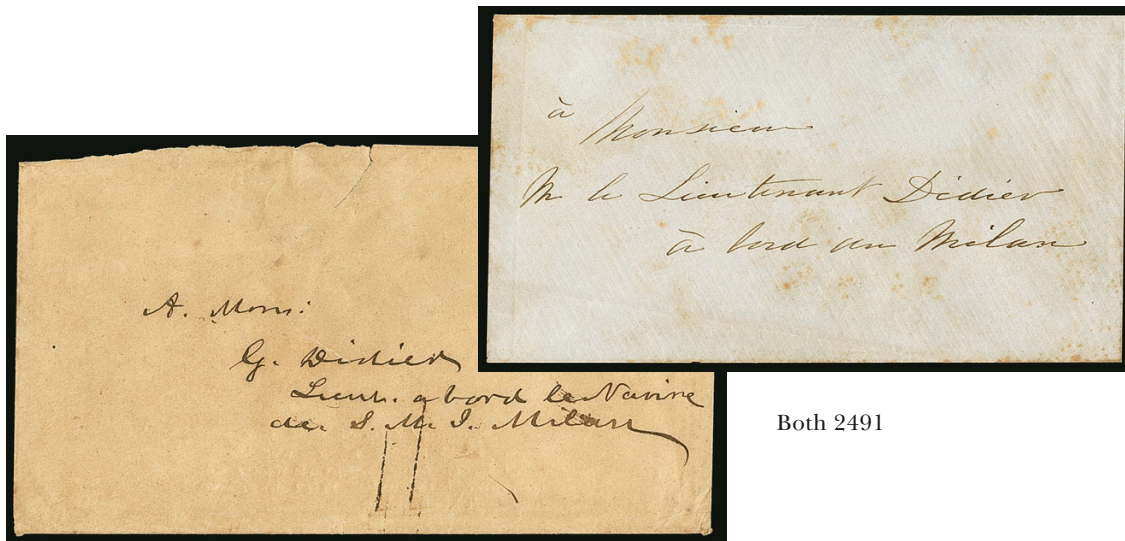 à
Monsieur
M le Lieutenant Didier
à bord du Milan
A. Mons:
G. Didier
Lieut. a bord le Navire
de S. M. I. Milan
Both 2491